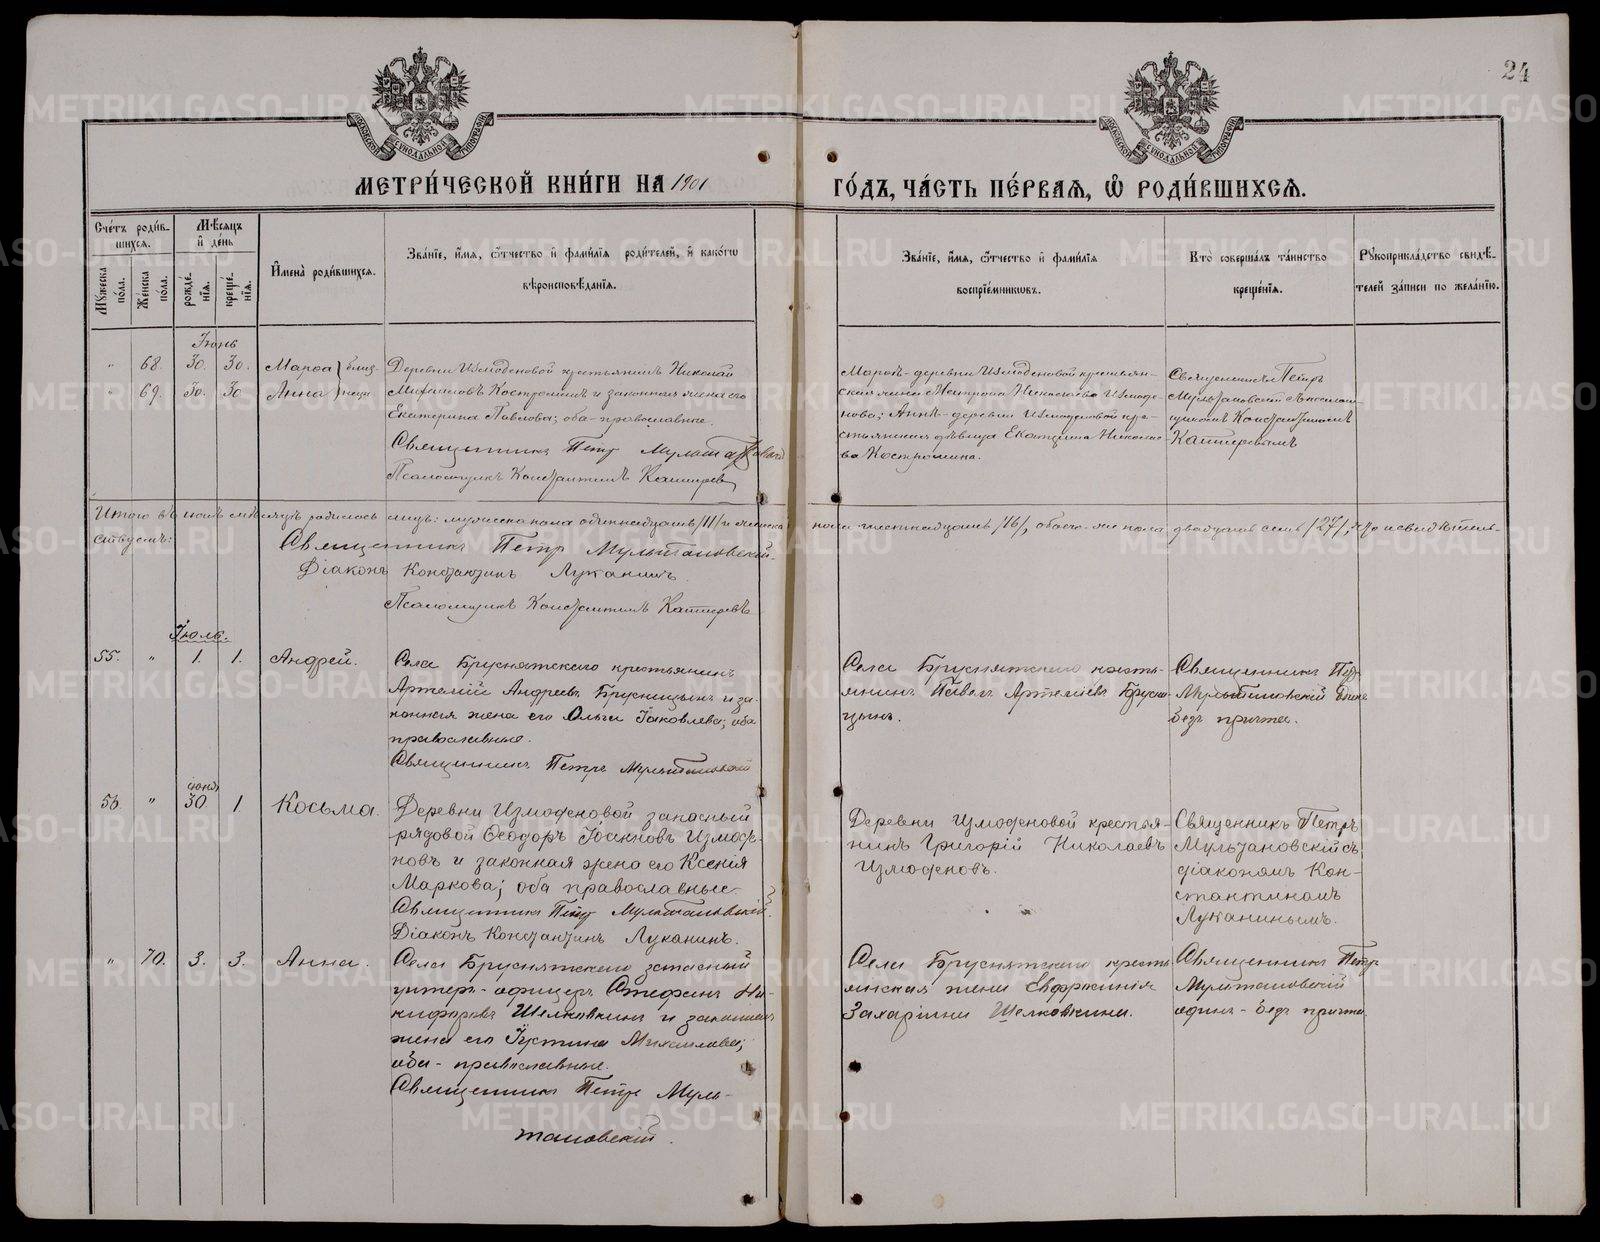 24
МЕТРИ́ЧЕСКОЙ КНИ́ГИ НА 1901
ГО́ДЪ, ЧА́СТЬ ПЕ́РВАѦ, Ѡ҆ РОДИ́ВШИХСѦ.
Сче́тъ роди́в-
шихсѧ.
Мѣ́сѧцъ
и҆ де́нь
Мꙋ́жеска по́ла.
Же́нска по́ла.
рожде́-
нїѧ.
креще́-
нїѧ.
И҆мена̀ роди́вшихсѧ.
Зва́нїе, и҆́мѧ, ѻ҆́тчество и҆ фами́лїѧ роди́телей, и҆ како́гѡ
вѣроисповѣ́данїѧ.
Зва́нїе, и҆́мѧ, ѻ҆́тчество и҆ фами́лїѧ
воспрїе́мникѡвъ.
Кто̀ соверша́лъ та́инство
креще́нїѧ.
Рꙋкоприкла́дство свидѣ́-
телей за́писи по жела́нїю.
Іюнь
" 68. 30. 30. Марѳа } близ-
69. 30. 30 Анна } нецы
Деревни Измоденовой крестьянинъ Николай
Михаиловъ Костроминъ и законная жена его
Екатерина Павлова; оба православные.
Священникъ Петр Мультановскій
Псаломщикъ Константинъ Кашперевъ
Марѳѣ - деревни Измоденовой крестьян-
ская жена
Измоде-
нова; Аннѣ - деревни Измоденовой кре-
стьянская дѣвица Екатерина Николае-
ва Костромина.
Священникъ Петръ
Мультановскій съ псалом-
щикомъ Константиномъ
Кашперевымъ
Итого въ іюнѣ мѣсяцѣ родилось лицъ: мужеска пола одиннадцать /11/ и женска пола шестнадцать /16/, обоего же пола двадцать семь /27/, что и свидѣтель-
ствуемъ:
Священникъ Петр Мультановскій.
Діаконъ Константинъ Луканинъ.
Псаломщикъ Константинъ Кашперевъ
Іюль.
55. " 1. 1. Андрей.
Села Бруснятскаго крестьянинъ
Артемій Андреевъ Брусницынъ и за-
конная жена его Ольга Іаковлева; оба
православные.
Священникъ Петръ Мультановскій
Села Бруснятскаго кресть-
янинъ Павелъ Артемьевъ Брусни-
цынъ.
Священникъ Петр
Мультановскій одинъ
безъ причта.
56 " іюня 30. 1 Косьма.
Деревни Измоденовой запасный
рядовой Ѳеодоръ Іоакновъ Измоде-
новъ и законная жена его Ксенія
Маркова; оба православные.
Священникъ Петр Мультановскій.
Діаконъ Константинъ Луканинъ.
Деревни Измоденовой крестья-
нинъ Григорій Николаевъ
Измоденовъ.
Священникъ Петръ
Мультановскій съ
діакономъ Кон-
стантиномъ
Луканинымъ.
" 70. 3. 3. Анна.
Села Бруснятскаго запасный
унтеръ-офицеръ Стефанъ Ни-
кифоровъ Шелковкинъ и законная
жена его Іустина Михаилова;
оба - православные.
Священникъ Петръ Муль-
тановскій.
Села Бруснятскаго кресть-
янская жена Евфросинія
Захаріина Шелковкина.
Священникъ Петр
Мултановскій
одинъ - безъ причта